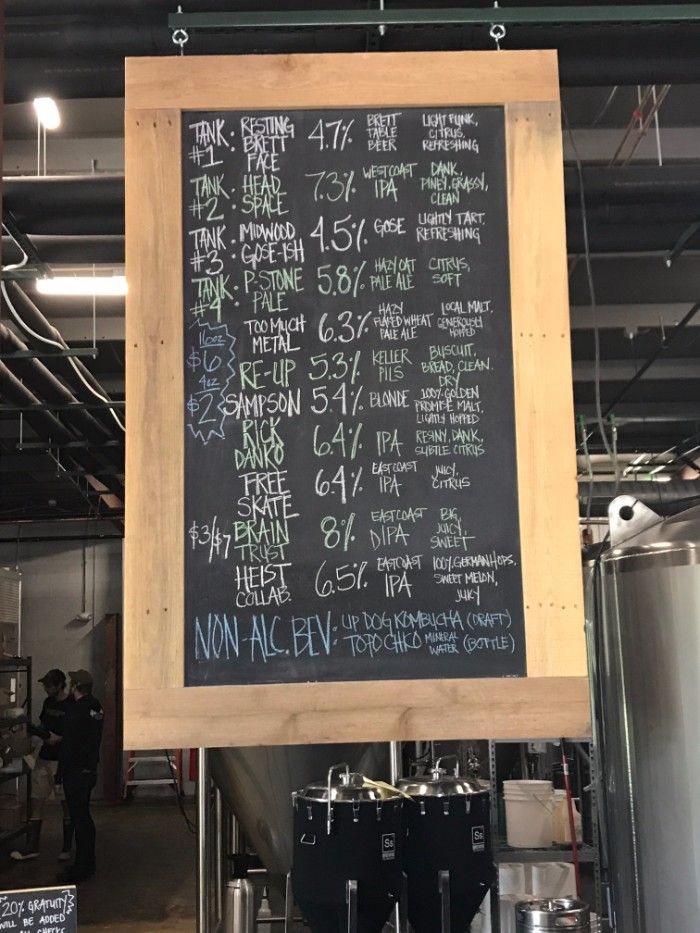 TANK #1 : RESTING BRETT FACE 4.7% BRETT TABLE BEER LIGHT FUNK, CITRUS, REFRESHING
TANK #2 : HEAD SPACE 7.3% WESTCOAST IPA DANK, PINEY, GRASSY, CLEAN
TANK #3 : MIDWOOD GOSE-ISH 4.5% GOSE LIGHTLY TART, REFRESHING
TANK #4 : P-STONE PALE 5.8% HAZY OAT PALE ALE CITRUS, SOFT
TOO MUCH METAL 6.3% HAZY FLAKED WHEAT PALE ALE LOCAL MALT, GENEROUSLY HOPPED
16oz $6 4oz $2
RE-UP 5.3% KELLER PILS BISCUIT, BREAD, CLEAN. DRY
SAMPSON 5.4% BLONDE 100% GOLDEN PROMISE MALT, LIGHTLY HOPPED
RICK DANKO 6.4% IPA RESINY, DANK, SUBTLE CITRUS
FREE SKATE 6.4% EASTCOAST IPA JUICY, CITRUS
$3/$7 BRAIN TRUST 8% EASTCOAST DIPA BIG, JUICY, SWEET
HEIST COLLAB. 6.5% EASTCOAST IPA 100% GERMAN HOPS, SWEET MELON, JUICY
NON-ALC. BEV: UP DOG KOMBUCHA (DRAFT)
TOPO CHICO MINERAL WATER (BOTTLE)
Ss
Ss
20% GRATUITY
WILL BE ADDED